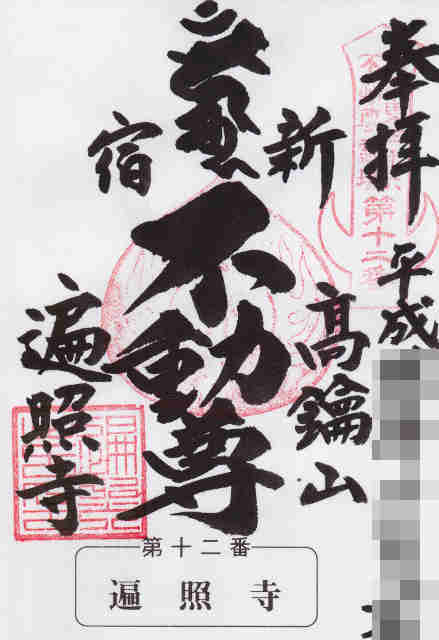 奉拝
平成
第十二番
新
宿
不動尊
高鑰山
遍照寺
第十二番
遍照寺